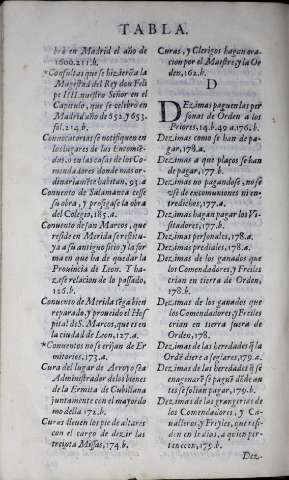 TABLA.
bró en Madrid el año de
1600.211.b.
Consultas que se hizierō a la
Magestad del Rey don Feli
pe IIII. nuestro Señor en el
Capitulo, que se celebró en
Madrid año de 652 y 653.
fol. 214.b.
Conuocatorias se notifiquen en
los lugares de las Encomiē-
das, o en las casas de los Comē-
dadores donde mas or-
dinariamēte habitan, 93.a
Conuento de Salamanca cesse
su obra, y prosigase la obra
del Colegio, 185.a.
Conuento de san Marcos, que
reside en Merida se restitu-
ya a su antiguo sitio y la for
ma en que ha de quedar la
Prouincia de Leon. Y ha-
zese relacion de lo passado,
126.b.
Conuento de Merida estèa bien
reparado, y proueido el Hos
pital de S. Marcos, que es en
la ciudad de Leon, 127.a.
Conuentos no se erijan de Er
mitorios, 173.a.
Cura del lugar de Arroyo sea
Administrador de los bienes
de la Ermita de Cubillana
juntamente con el mayordo
mo della 172.b.
Curas lleuen los pie de altares
con el cargo de dezir las
treçinta Missas, 174.b.
Curas, y Clerigos hagan ora
cion por el Maestre, y la Or
den, 162.b.
D
DEzimas paguen las per
sonas de Orden a los
Priores, 14.b. 40.a 176.b.
Dezimas como se han de pa-
gar, 178.a.
Dezimas a que plaços se han
de pagar, 177.b.
Dezimas no pagandose, no se
use de excomuniones ni en-
tredichos, 177.a.
Dezimas hagan pagar los Vi-
sitadores, 177.b.
Dezimas personales, 178.a.
Dezimas prediales, 178.a.
Dezimas de los ganados que
los Comendadores, y Freiles
crian en tierra de Orden,
178.b.
Dezimas de los ganados que
los Comendadores, y Freiles
crian en tierra fuera de
Orden, 178.b.
Dezimas de las heredades q̄ la
Ordē diere a seglares, 179.a.
Dezimas de las heredades q̄ se
enagenarē se paguē adōde an
tes se solian pagar, 179.b.
Dezimas de las grangerias de
los Comendadores, y Ca-
ualleros, y Freyles, que resi-
den en Indias, a quien per-
tenecen, 175.b.
Dez-